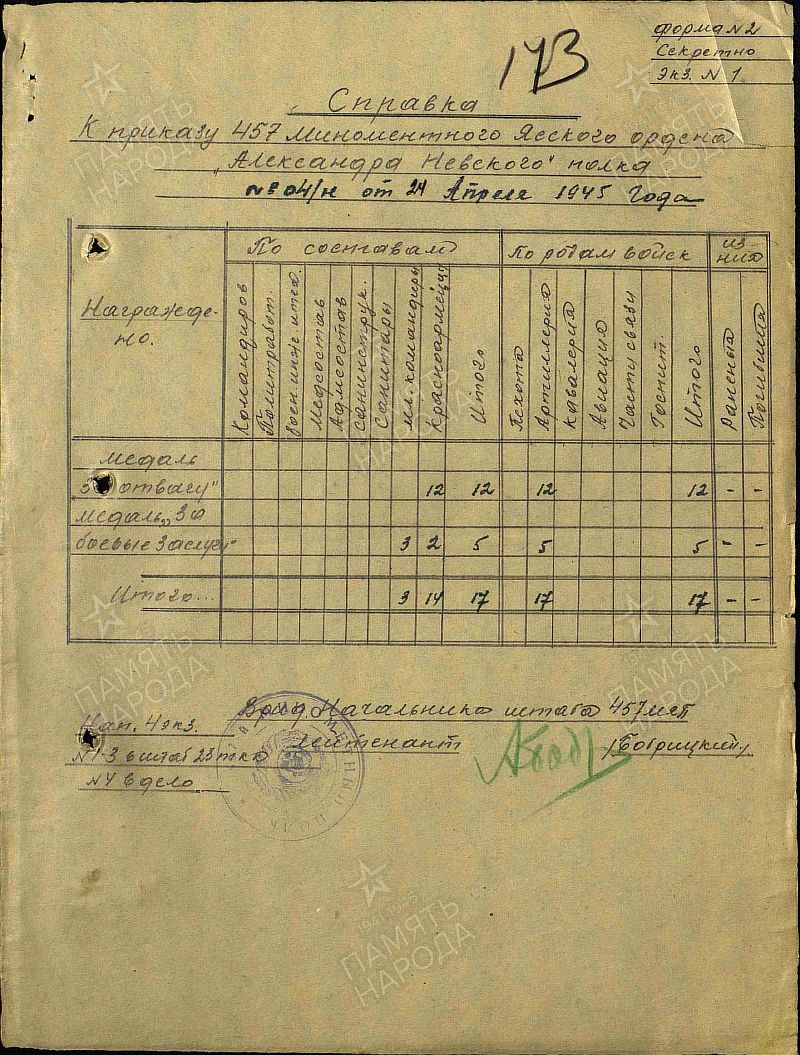 173
форма N 2
Секретно
Экз. N 1
Справка
К приказу 457 Миноментного Ясского ордена
„Александра Невского" полка
№ 04/н от 24 Апреля 1945 Года
Награжде-
но.
По составам
По родам войск
из
них
Командиров
Политработ.
Воен. инж. и тех.
Медсостав
Адмсостав
Санинструк.
Санитары
мл. командиры
Красноармейцы
Итого
Пехота
Артиллерия
Кавалерия
Авиация
Части связи
Госпит.
Итого
Раненых
Погибших
медаль
отвагу" 12 12 12 12 - -
медаль „За
боевые заслуги" 3 2 5 5 5 - -
Итого... 3 14 17 17 17 - -
Врид. Начальника штаба 457 мп
лейтенант /Бобрицкий/
Нап. 4 экз.
N 1-3 в штаб 23 тк
N 4 в дело
МИНОМЕТНЫЙ ПОЛК
ПАМЯТЬ
НАРОДА
1941-1945
ПАМЯТЬ
НАРОДА